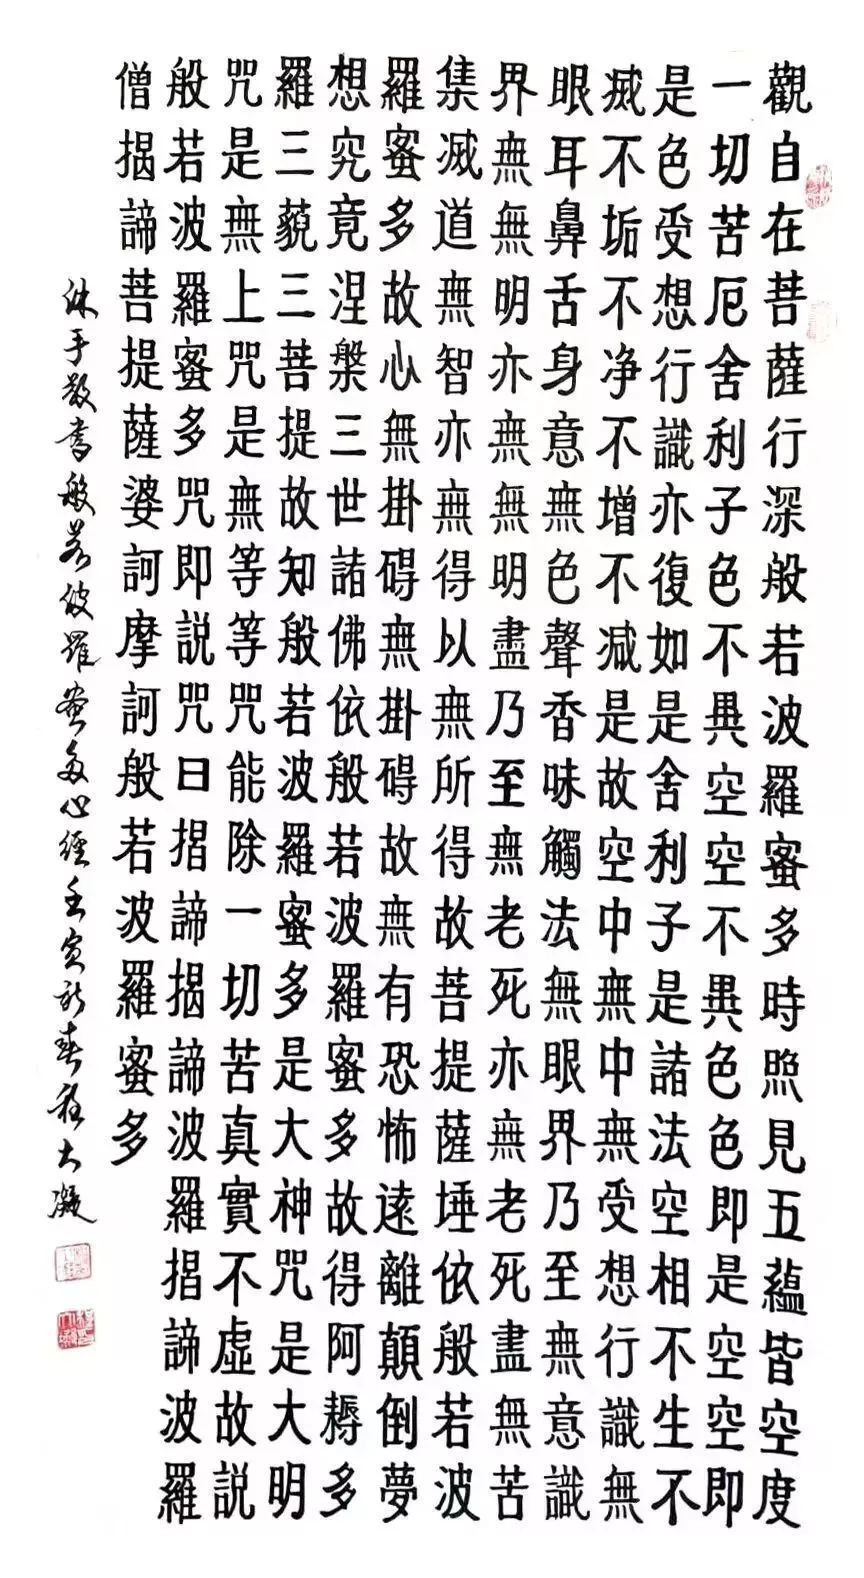 觀自在菩薩行深般若波羅蜜多時照見五蘊皆空度
一切苦厄舍利子色不異空空不異色色即是空空即
是色受想行識亦復如是舍利子是諸法空相不生不
滅不垢不净不增不减是故空中無中無受想行識無
眼耳鼻舌身意無色聲香味觸法無眼界乃至無意識
界無無明亦無無明盡乃至無老死亦無老死盡無苦
集滅道無智亦無得以無所得故菩提薩埵依般若波
羅蜜多故心無掛碍無掛碍故無有恐怖遠離顛倒夢
想究竟涅槃三世諸佛依般若波羅蜜多故得阿耨多
羅三藐三菩提故知般若波羅蜜多是大神咒是大明
咒是無上咒是無等等咒能除一切苦真實不虛故説
般若波羅蜜多咒即説咒曰揩諦揭諦波羅揩諦波羅
僧揭諦菩提薩婆訶摩訶般若波羅蜜多
沐手敬書般若波羅蜜多心經壬寅新春程大凝